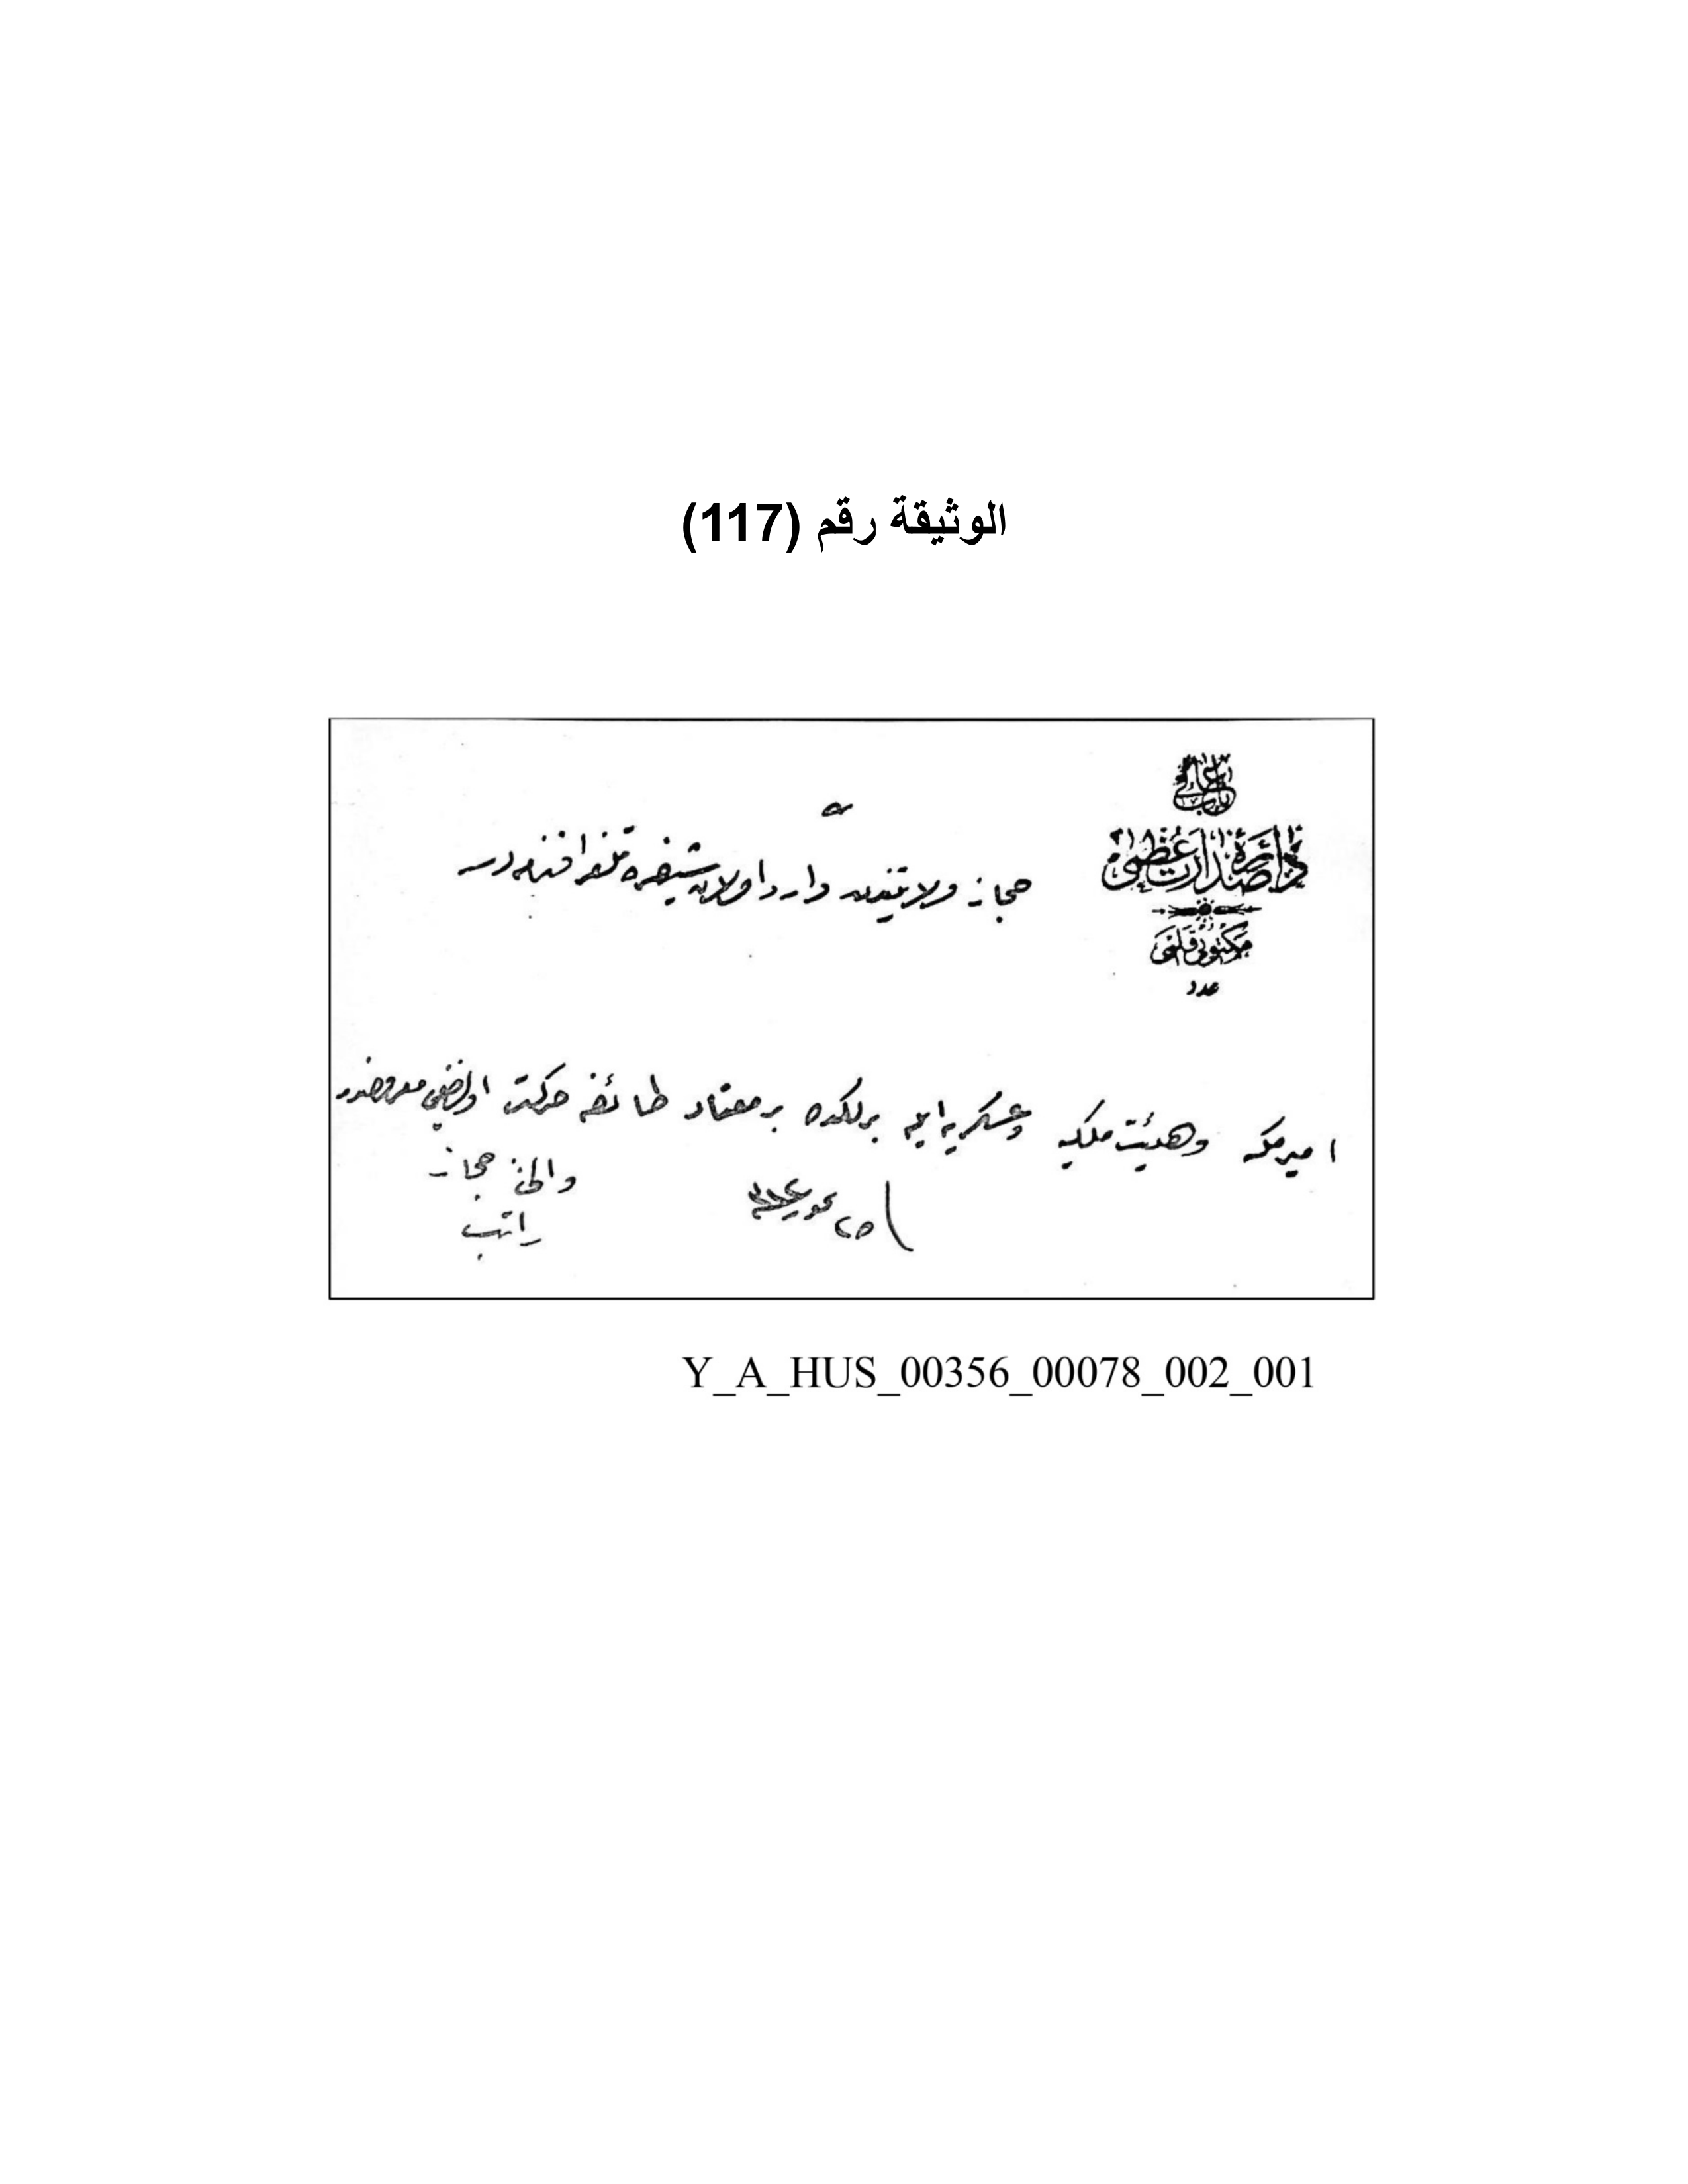 الوثيقة رقم (117)
باب عالى
دائرۀ صدارت عظمى
مكتوبى قلمى
عدد
حجاز ولايتندن وارد اولان شيفره تلغرافنامه در
امير مكه وهيئت ملكيه وعسكريه ايله برلكده بر معتاد طائفه حركت اولنديغى معروضدر
والئ حجاز
راتب
Y_A_HUS_00356_00078_002_001